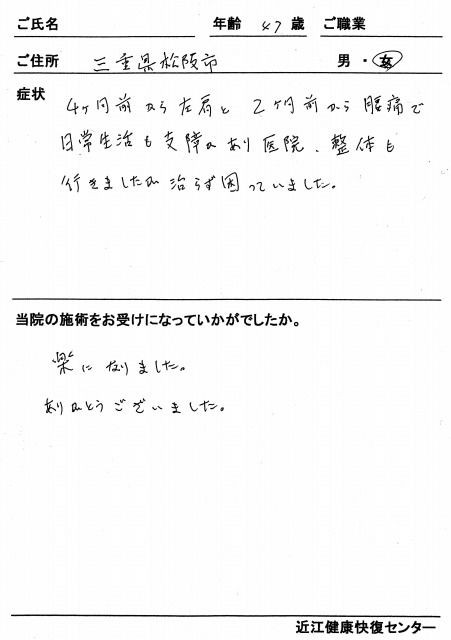 ご氏名 年齢 47 歳 ご職業
ご住所 三重県松阪市 男 ・ 女
症状
4ヶ月前から左肩と 2ヶ月前から腰痛で
日常生活も支障があり医院、整体も
行きましたが治らず困っていました。
当院の施術をお受けになっていかがでしたか。
楽になりました。
ありがとうございました。
近江健康快復センター